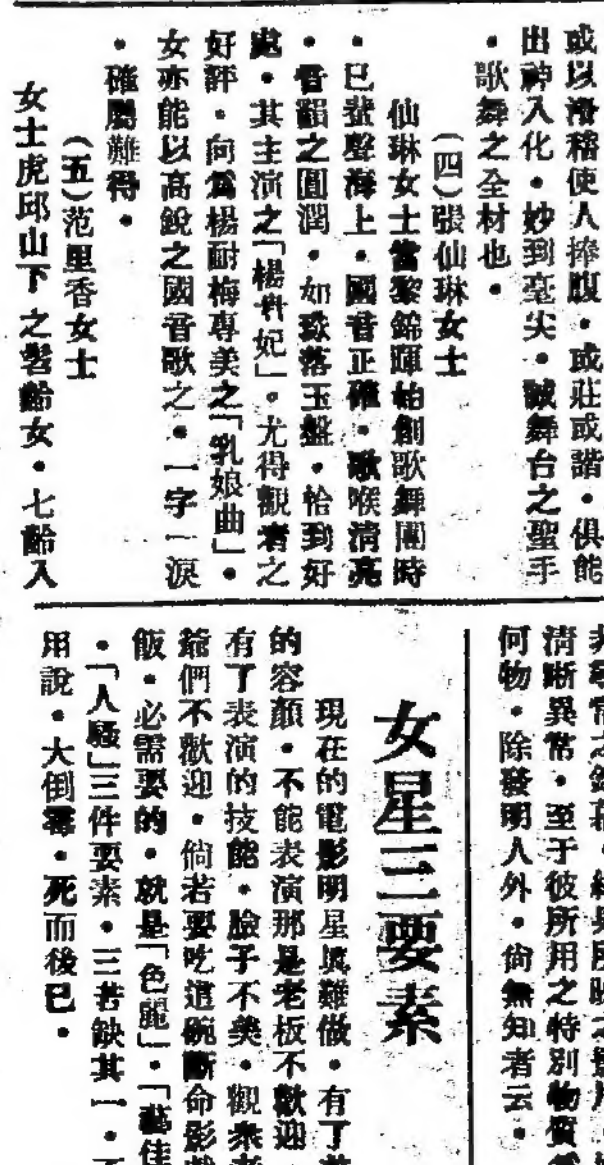 或以滑稽使人捧腹。或莊或諧。俱能
出神入化。妙到毫尖。誠舞台之聖手
。歌舞之全材也。
(四)張仙琳女士
仙琳女士當黎錦暉始創歌舞團時
。已蜚聲海上。國音正確。歌喉清亮
。音韻之圓潤。如珠落玉盤。恰到好
處。其主演之「楊貴妃」。尤得觀者之
好評。向爲楊耐梅專美之「乳娘曲」。
女亦能以高銳之國音歌之。一字一淚
。確屬難得。
(五)范里香女士
女士虎邱山下之髫齡女。七齡入
非尋常之
清晰異常。至于彼所用之特別物質
何物。除發明人外。尙無知者云。
女星三要素
現在的電影明星眞難做。有了
的容顏。不能表演那是老板不歡迎
有了表演的技能。臉子不美。觀衆老
爺們不歡迎。倘若要吃這碗斷命影戲
飯。必需要的。就是「色麗」。「藝佳
。「人騷」三件要素。三若缺其一。不
用說。大倒霉。死而後已。